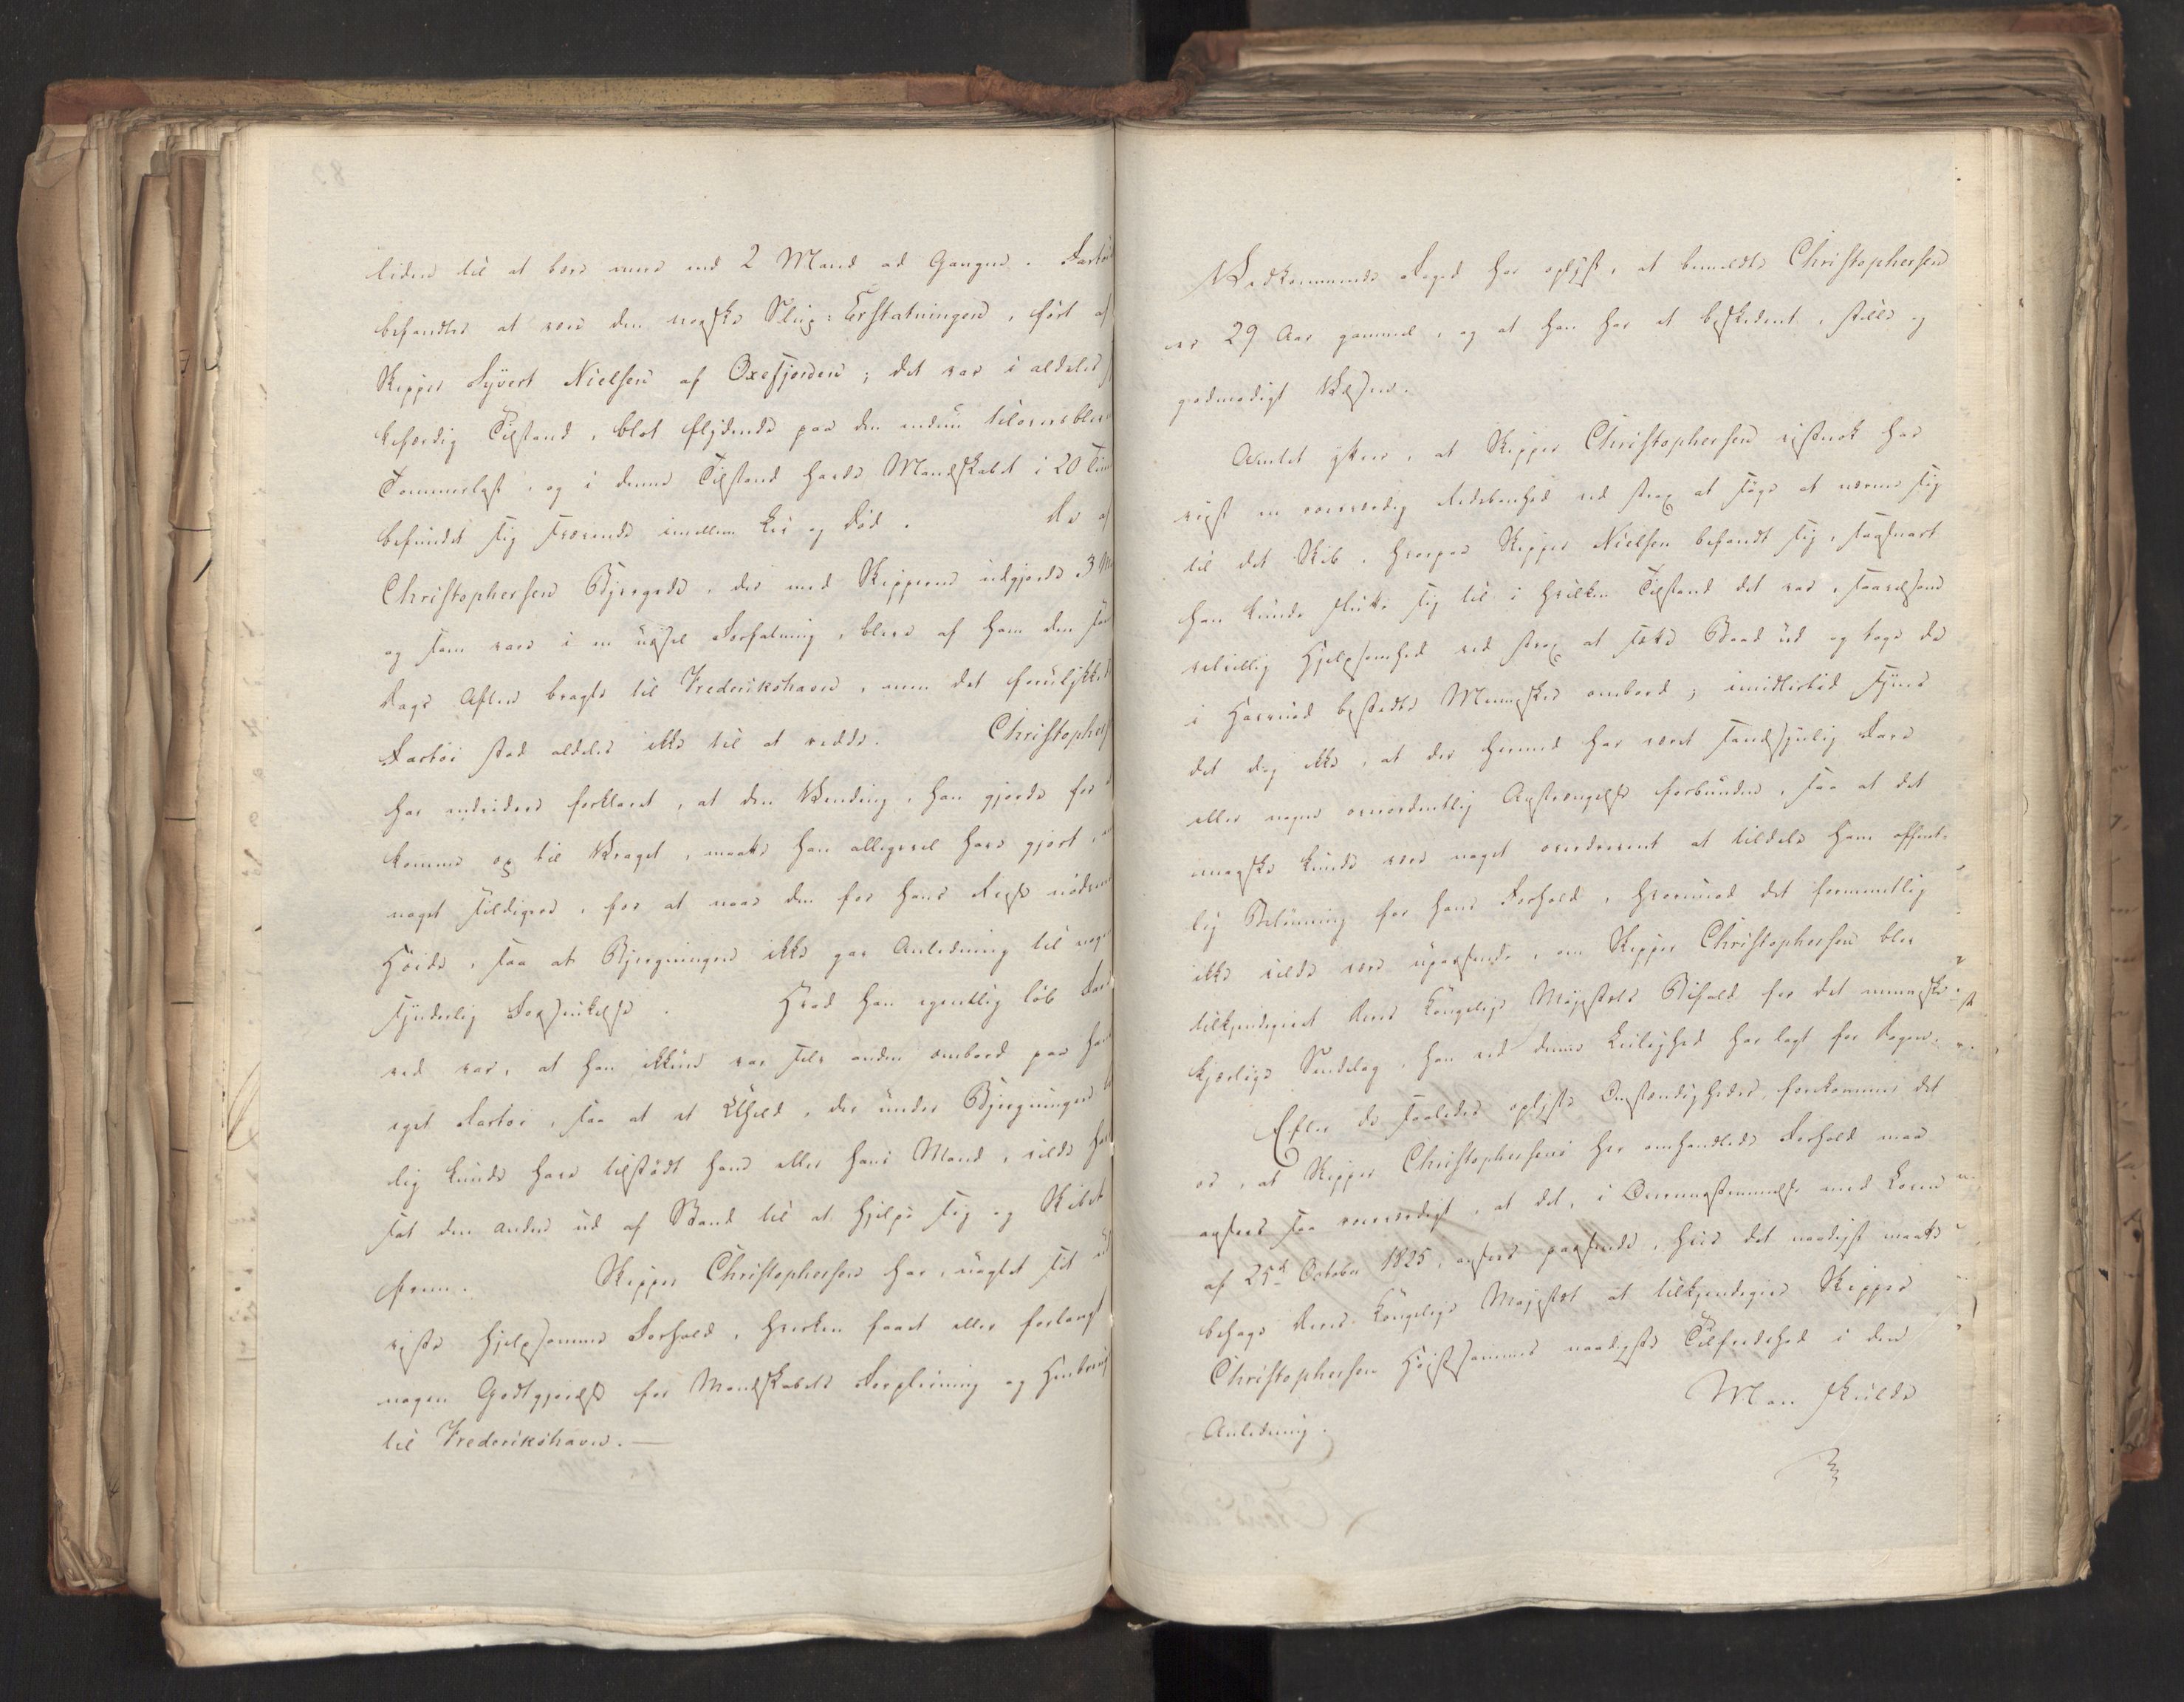 liden til at bære mere end 2 Mand ad Gangen. Fartøi
befandtes at være den norske Slup: Erstatningen, ført af
Skipper Syvert Nielsen af Oxefjorden; det var i aldeles
kefærdig Tilstand, blot flydende paa den endnu tilovers blevne
Tommerlast, og i denne Tilstand havde Mandskabet i 20 Tim
befundet sig svævende imellem Liv og Død. De af
Christophersen Bjergede, der med Skipperen udgjorde 3 M
og som vare i en ussel Forfatning, bleve af ham den
Dags Aften bragte til Frederikshavn, men det forulykkede
Fartøi stod aldeles ikke til at redde. Christophers
har endvidere forklaret, at den Vending, han gjorde for
komme op til Vraget, maatte han alligevel have gjort,
noget tidligere, for at naae den for hans Reise nødven
Høide, saa at Bjergningen ikke gav Anledning til nogen
synderlig Forsinkelse. Hvad han egentlig løb Fare
ved var, at han ikkun var selv anden ombord paa
eget Fartøi, saa at et Uheld, der under Bjergningen
lig kunde have tilstødt ham eller hans Mand, vilde
sat den anden ud af Stand til at hjelpe sig og Skibet
frem. Skipper Christophersen har, uagtet sit
viste hjelpsomme Forhold, hverken faaet eller forlangt
nogen Godtgjørelse for Mandskabets Forpleining og Henbring
til Frederikshavn.—
Vedkommende Foged har oplyst, at bemeldte Christophersen
er 29 Aar gammel, og at han har et beskedent, stille og
godmodigt Væsen.
Amtet yttrer, at Skipper Christophersen vistnok har
viist en roesværdig Redebonhed ved strax at søge at nærme sig
til det Skib, hvorpaa Skipper Nielsen befandt sig, saasnart
han kunde slutte sig til i hvilken Tilstand det var, saavelsom
velvillig Hjelpsomhed ved strax at sætte Baad ud og tage de
i Havsnød bestedte Mennesker ombord; imidlertid synes
det dog ikke, at der hermed har været sandsynlig Fare
eller nogen overordentlig Anstrængelse forbunden, saa at det
maaske kunde være noget overdrevent at tildele ham offent-
lig Belønning for hans Forhold, hvorimod det formeentlig
ikke vilde være upassende, om Skipper Christophersen blev
tilkjendegivet Deres Kongelige Majestæts Bifald for det menneske-
kjerlige Sindelag, han ved denne Leilighed har lagt for Dagen.
Efter de saaledes oplyste Omstændigheder, forekommer det
os, at Skipper Christophersens her omhandlede Forhold maa
ansees saa roesværdigt, at det, i Overeensstemmelse med Loven
af 25de October 1825, ansees passende, hvis det naadigst maatte
behage Deres Kongelige Majestæt at tilkjendegive Skipper
Christophersen Høistsammes naadigste Tilfredshed i den
Anledning. Man skulde